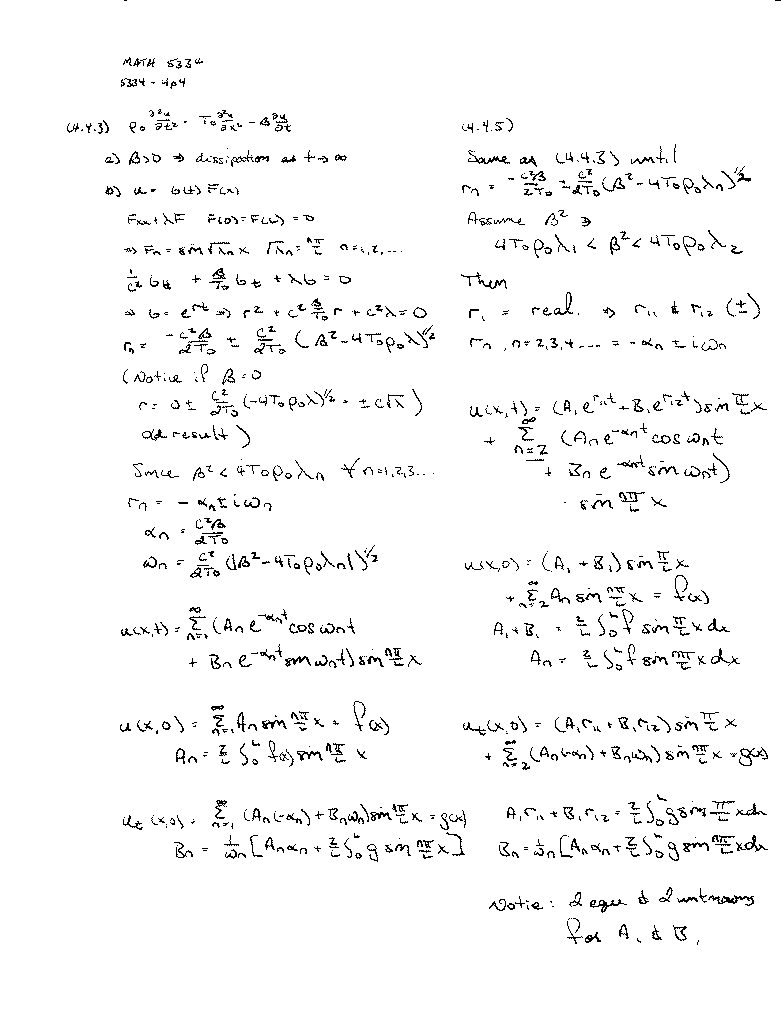 MATH 5334
5334 - 4p4
(4.4.3) ρ₀ ∂²u/∂t² = T₀ ∂²u/∂x² - β ∂u/∂t
a) β>0 ⇒ dissipation as t→∞
b) u = G(t) F(x)
Fxx + λF F(0)=F(L)=0
⇒ Fn = sin √λn x √λn = nπ/L n=1,2,...
1/c² Gtt + β/T₀ Gt + λG = 0
⇒ G = e^rt ⇒ r² + c² β/T₀ r + c²λ = 0
rn = -c²β/2T₀ ± c²/2T₀ (β² - 4T₀ρ₀λ)^1/2
(Notice if β=0
r = 0 ± c²/2T₀ (-4T₀ρ₀λ)^1/2 = ± c√λ )
old result )
Since β² < 4T₀ρ₀λn ∀ n=1,2,3...
rn = -αn ± iωn
αn = c²β/2T₀
ωn = c²/2T₀ (|β² - 4T₀ρ₀λn|)^1/2
u(x,t) = Σ n=1 ∞ (An e^-αnt cos ωnt
+ Bn e^-αnt sin ωnt) sin nπ/L x
u(x,0) = Σ n=1 ∞ An sin nπ/L x = f(x)
An = 2/L ∫₀^L f(x) sin nπ/L x
ut(x,0) = Σ n=1 ∞ (An(-αn) + Bnωn) sin nπ/L x = g(x)
Bn = 1/ωn [Anαn + 2/L ∫₀^L g sin nπ/L x]
(4.4.5)
Same as (4.4.3) until
rn = -c²β/2T₀ ± c²/2T₀ (β² - 4T₀ρ₀λn)^1/2
Assume β² ∋
4T₀ρ₀λ₁ < β² < 4T₀ρ₀λ₂
Then
r₁ = real. ⇒ r₁₁ & r₁₂ (±)
rn, n=2,3,4.... = -αn ± iωn
u(x,t) = (A₁e^r₁₁t + B₁e^r₁₂t) sin π/L x
+ Σ n=2 ∞ (An e^-αnt cos ωnt
+ Bn e^-αnt sin ωnt)
· sin nπ/L x
u(x,0) = (A₁ + B₁) sin π/L x
+ Σ n=2 ∞ An sin nπ/L x = f(x)
A₁+B₁ = 2/L ∫₀^L f sin π/L x dx
An = 2/L ∫₀^L f sin nπ/L x dx
ut(x,0) = (A₁r₁₁ + B₁r₁₂) sin π/L x
+ Σ n=2 ∞ (An(-αn) + Bnωn) sin nπ/L x = g(x)
A₁r₁₁ + B₁r₁₂ = 2/L ∫₀^L g sin π/L x dx
Bn = 1/ωn [Anαn + 2/L ∫₀^L g sin nπ/L x dx
Notice: 2 eqns & 2 unknowns
for A₁ & B₁